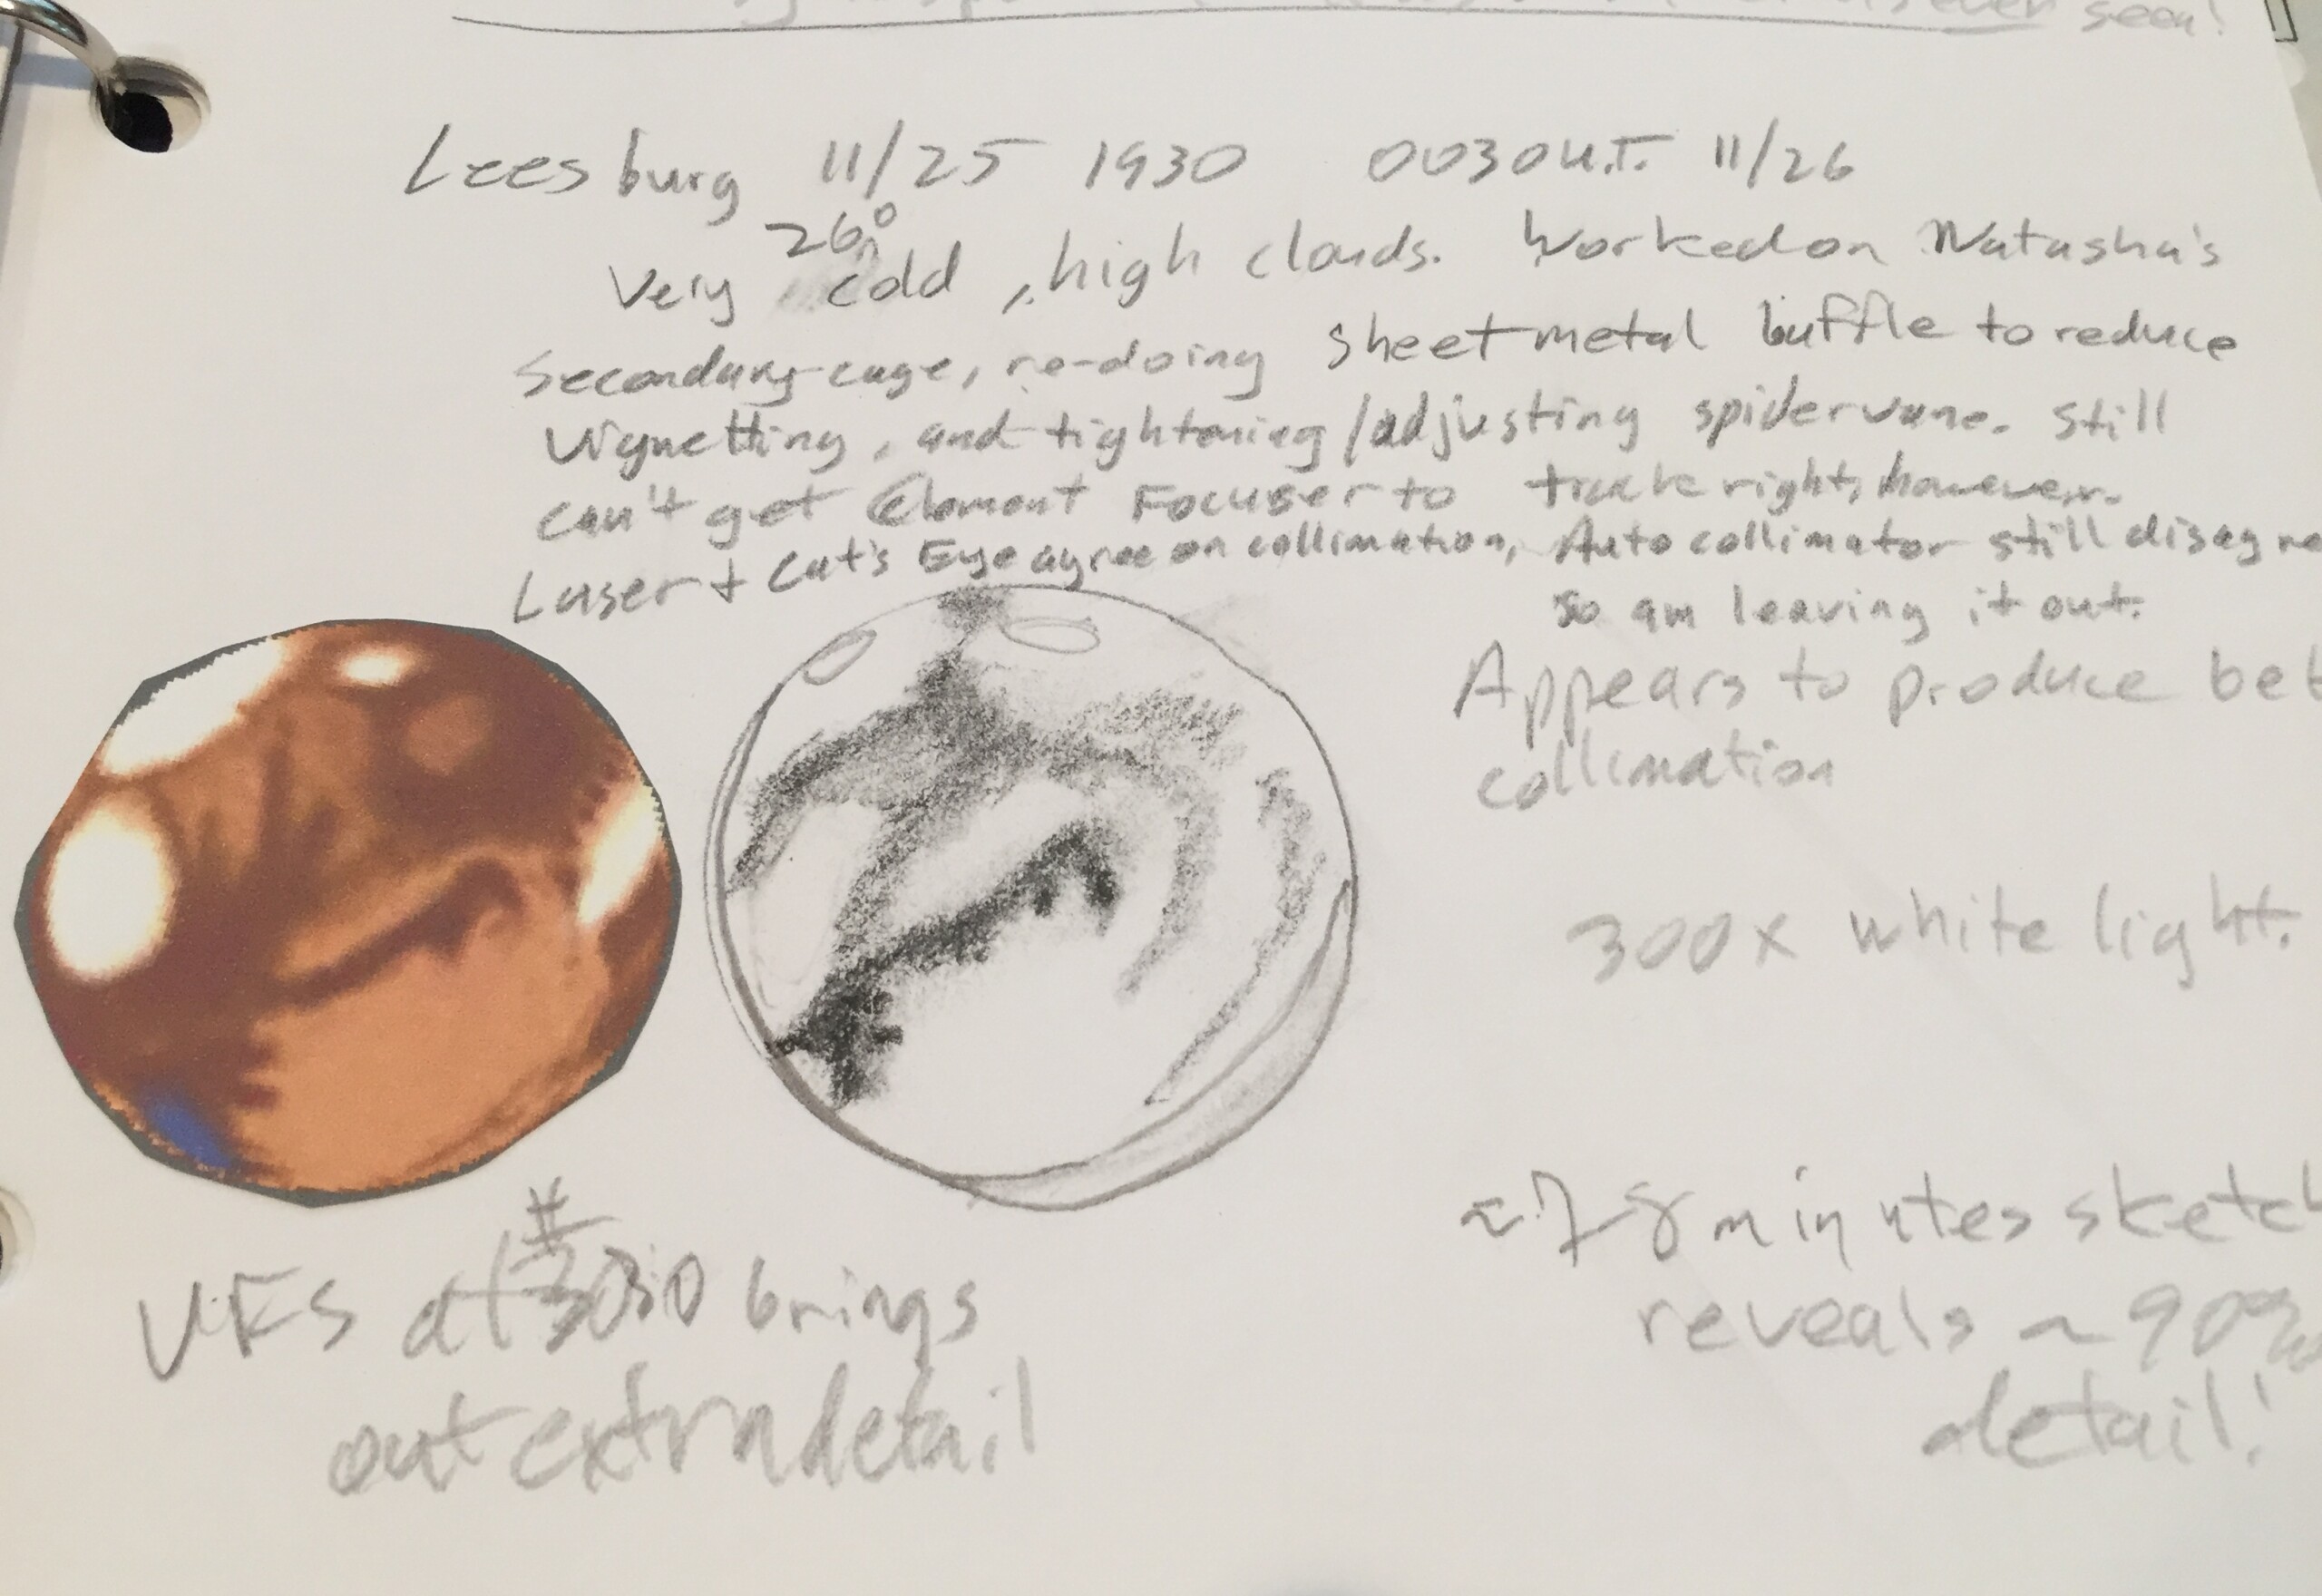 ever seen!
Leesburg 11/25 1930 0030 U.T. 11/26
26°
Very cold, high clouds. Worked on Natasha's
Secondary cage, re-doing sheet metal baffle to reduce
Vignetting, and tightening/adjusting spider vane. Still
can't get Clement Focuser to track right, however.
Laser + Cat's Eye agree on collimation, Autocollimator still disagre
so am leaving it out.
Appears to produce bet
collimation
300x white light.
≈7-8 minutes sketch
reveals ~90%
detail!
at brings
out extra detail